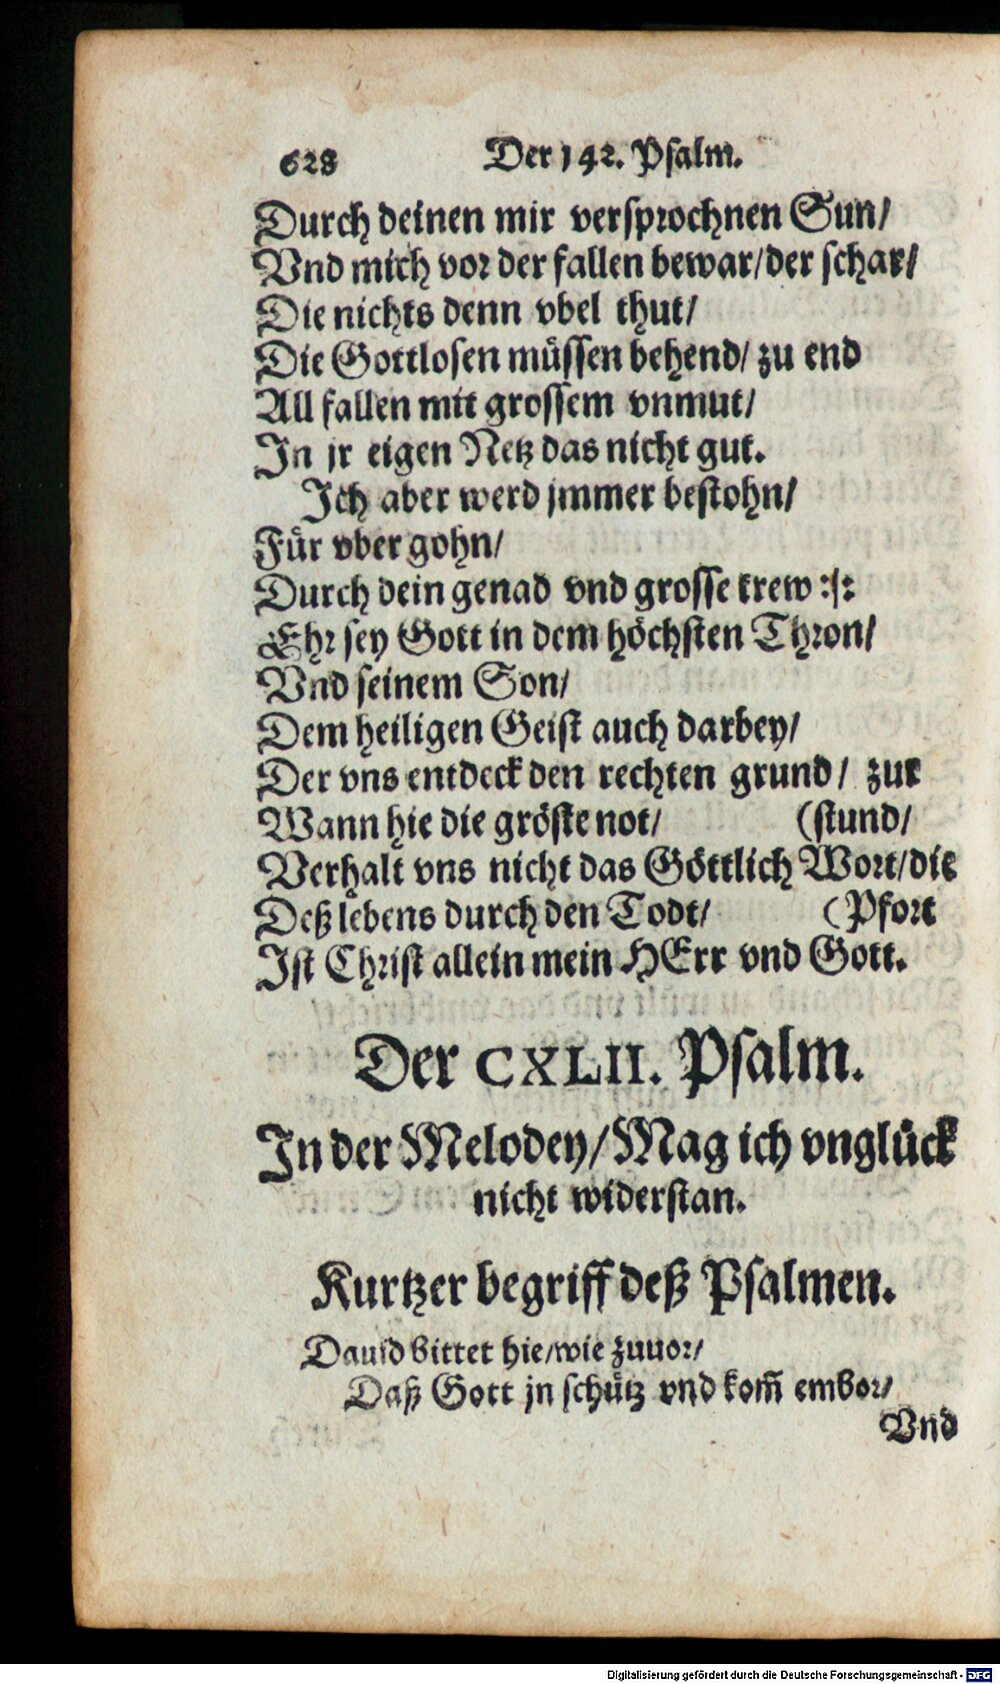 628 Der 142. Psalm.
Durch deinen mir versprochnen Sun/
Vnd mich vor der fallen bewar/der schar/
Die nichts denn vbel thut/
Die Gottlosen müssen behend/ zu end
All fallen mit grossem vnmut/
In jr eigen Netz das nicht gut.
Ich aber werd jmmer bestohn/
Für vber gohn/
Durch dein genad vnd grosse trew :/:
Ehr sey Gott in dem höchsten Thron/
Vnd seinem Son/
Dem heiligen Geist auch darbey/
Der vns entdeck den rechten grund/ zur
Wann hie die gröste not/ (stund/
Verhalt vns nicht das Göttlich Wort/die
Deß lebens durch den Todt/ (Pfort
Ist Christ allein mein HErr vnd Gott.
Der CXLII. Psalm.
In der Melodey/Mag ich vnglück
nicht widerstan.
Kurtzer begriff deß Psalmen.
Dauid bittet hie/wie zuuor/
Daß Gott jn schütz vnd kom̃ embor/
Vnd
Digitalisierung gefördert durch die Deutsche Forschungsgemeinschaft - DFG